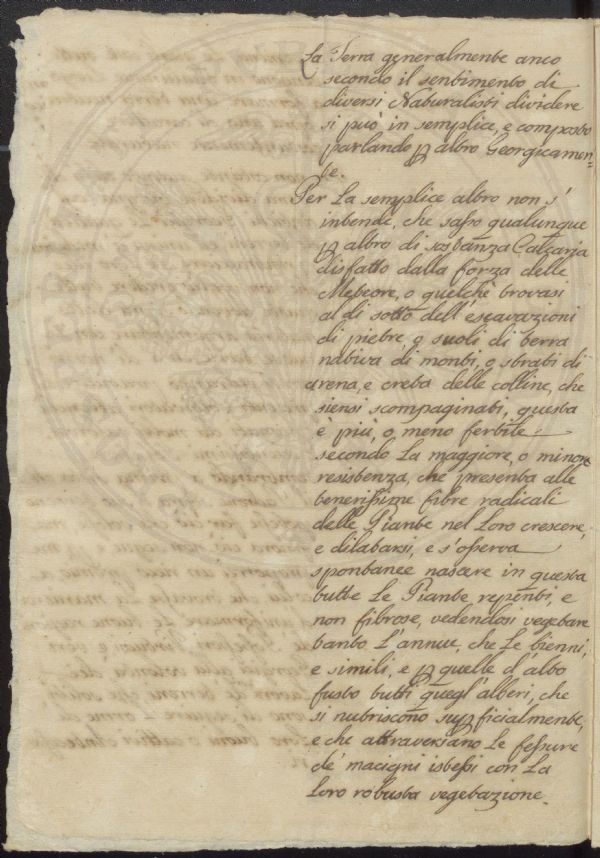 La Terra generalmente anco
secondo il sentimento di
diversi Naturalisti dividere
si può in semplice, e composto
parlando p altro Georgicamen=
te.
Per La semplice altro non s'
intende, che sasso qualunque
p altro di sostanza Calcaria
disfatto dalla forza delle
Meteore, o quelchè trovasi
al di sotto dell'escavazioni
di pietre, o suoli di terra
nativa di monti, o strati di
arena, e creta delle colline, che
siensi scompaginati, questa
è più, o meno fertile
secondo La maggiore, o minore
resistenza, che presenta alle
tenerissime fibre radicali
delle Piante nel Loro crescere,
e dilatarsi, e s'osserva
spontanee nascere in questa
tutte Le Piante repenti, e
non fibrose, vedendosi vegetare
tanto L'annue, che Le bienni,
e simili, e p quelle d'alto
fusto tutti quegl'alberi, che
si nutriscono supficialmente,
e che attraversano Le fessure
de' macigni istessi con La
Loro robusta vegetazione.